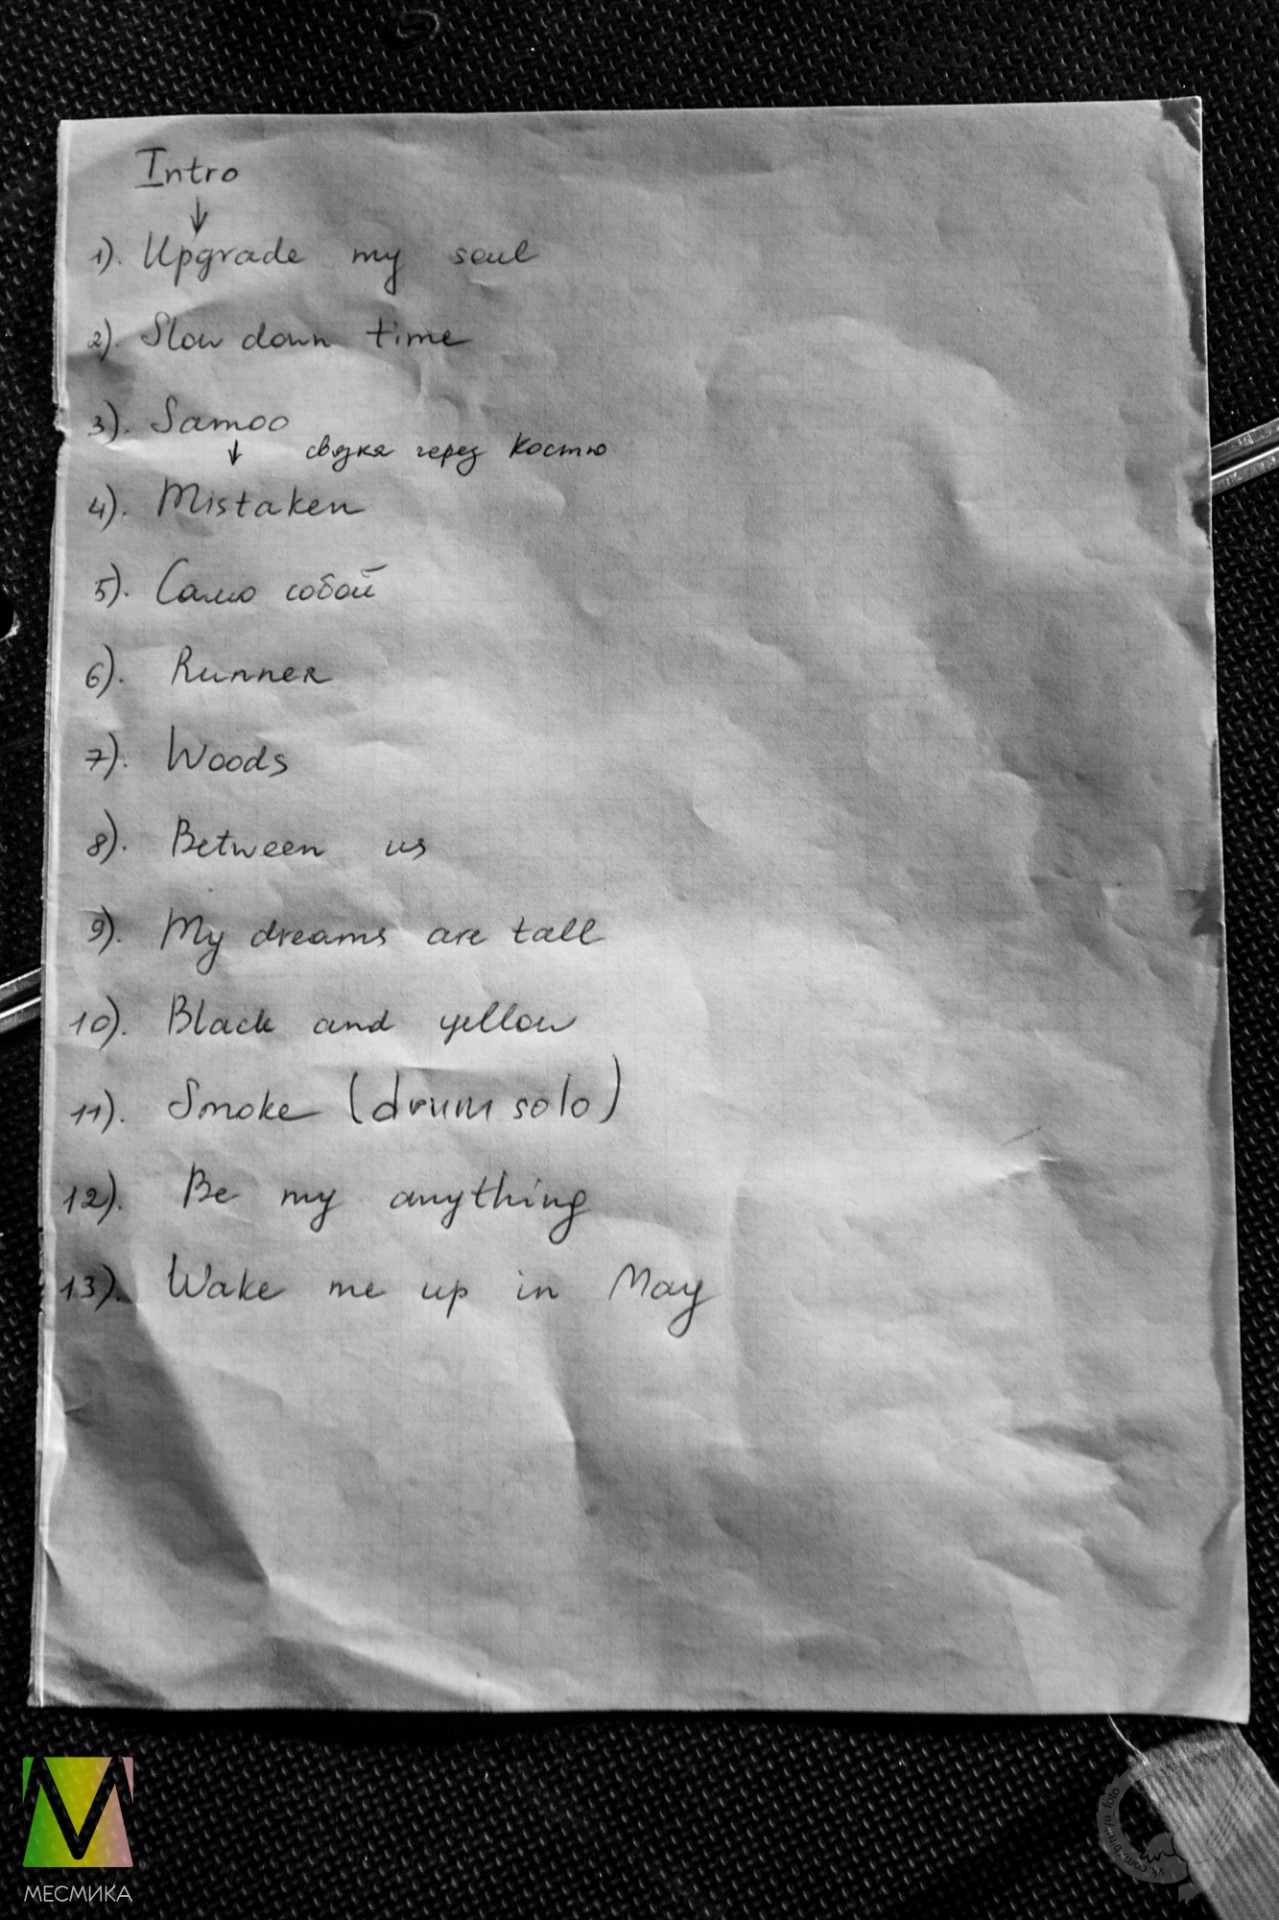 Intro
↓
1). Upgrade my soul
2). Slow down time
3). Samoo
↓ связка через Костю
4). Mistaken
5). Само собой
6). Runner
7). Woods
8). Between us
9). My dreams are tall
10). Black and yellow
11). Smoke (drum solo)
12). Be my anything
13). Wake me up in May
МЕСМИКА